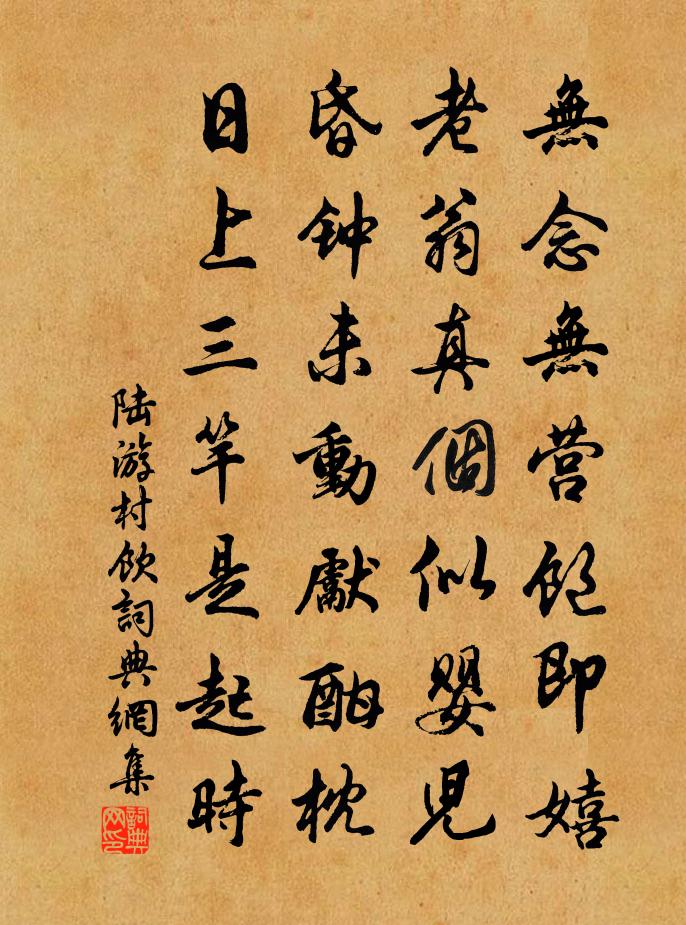 無念無营飽即嬉
老翁真個似嬰兒
昏钟未動獻酣枕
日上三竿是起時
陆游村饮詞典網集
詞典网印